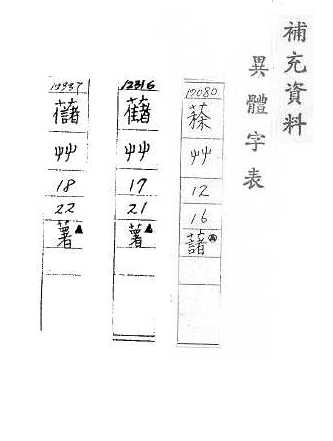 補充資料
異體字表
12080
蓀
艸
12
16
藷
12316
艸
17
21
薯
12937
艸
18
22
薯